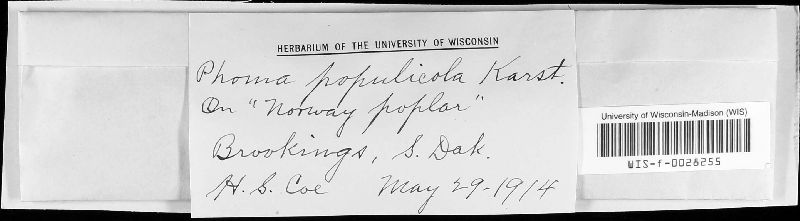 HERBARIUM OF THE UNIVERSITY OF WISCONSIN
Phoma populicola Karst.
On "Norway poplar"
Brookings, S. Dak.
H. S. Coe May 29-1914
University of Wisconsin-Madison (WIS)
WIS-f-0028255